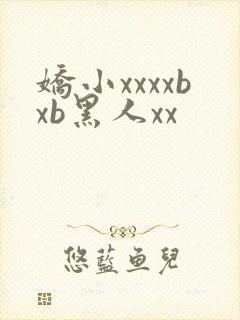 嬌小xxxxb
xb黑人xx
悠藍魚兒